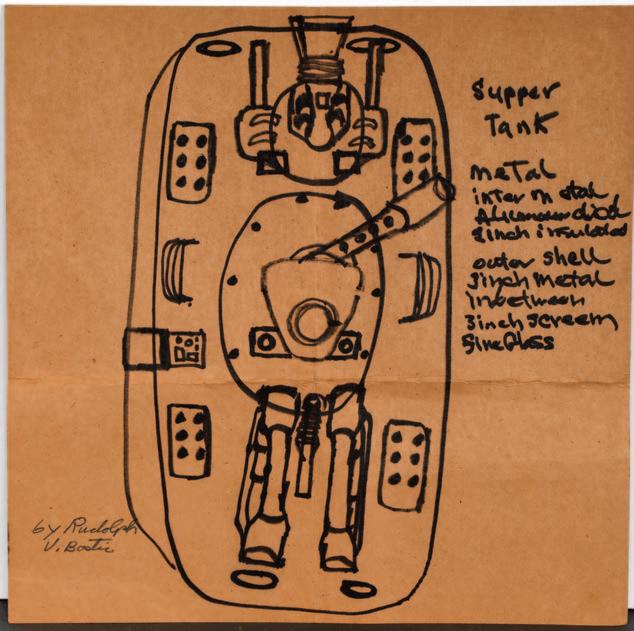 Supper
Tank
metal
inter metal
8inch insulated
outer shell
3inch metal
inbetween
3inch screem
5ineGlass
by Rudolph
V. Bostic